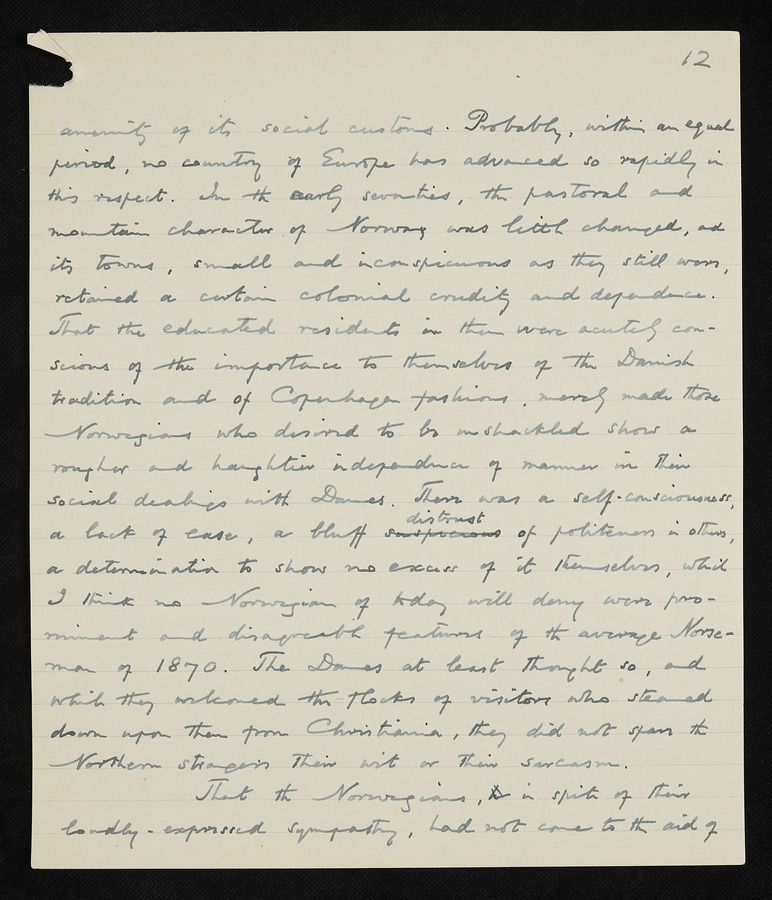 12
amenity of its social customs. Probably, within an equal
period, no country of Europe has advanced so rapidly in
this respect. In the early seventies, the pastoral and
mountain character of Norway was little changed, and
its towns, small and inconspicuous as they still were,
retained a certain colonial crudity and dependence.
That the educated residents in them were acutely con-
scious of the importance to themselves of the Danish
tradition and of Copenhagen fashions, merely made those
Norwegians who desired to be unshackled show a
rougher and haughtier independence of manner in their
social dealings with Danes. There was a self-consciousness,
distrust
a lack of ease, a bluff suspicious of politeness in others,
a determination to show no excess of it themselves, which
I think no Norwegian of today will deny were pro-
minent and disagreeable features of the average Norse-
man of 1870. The Danes at least thought so, and
while they welcomed the flocks of visitors who steamed
down upon them from Christiania, they did not spare the
Northern strangers their wit or their sarcasm.
That the Norwegians, in spite of their
loudly-expressed sympathy, had not come to the aid of